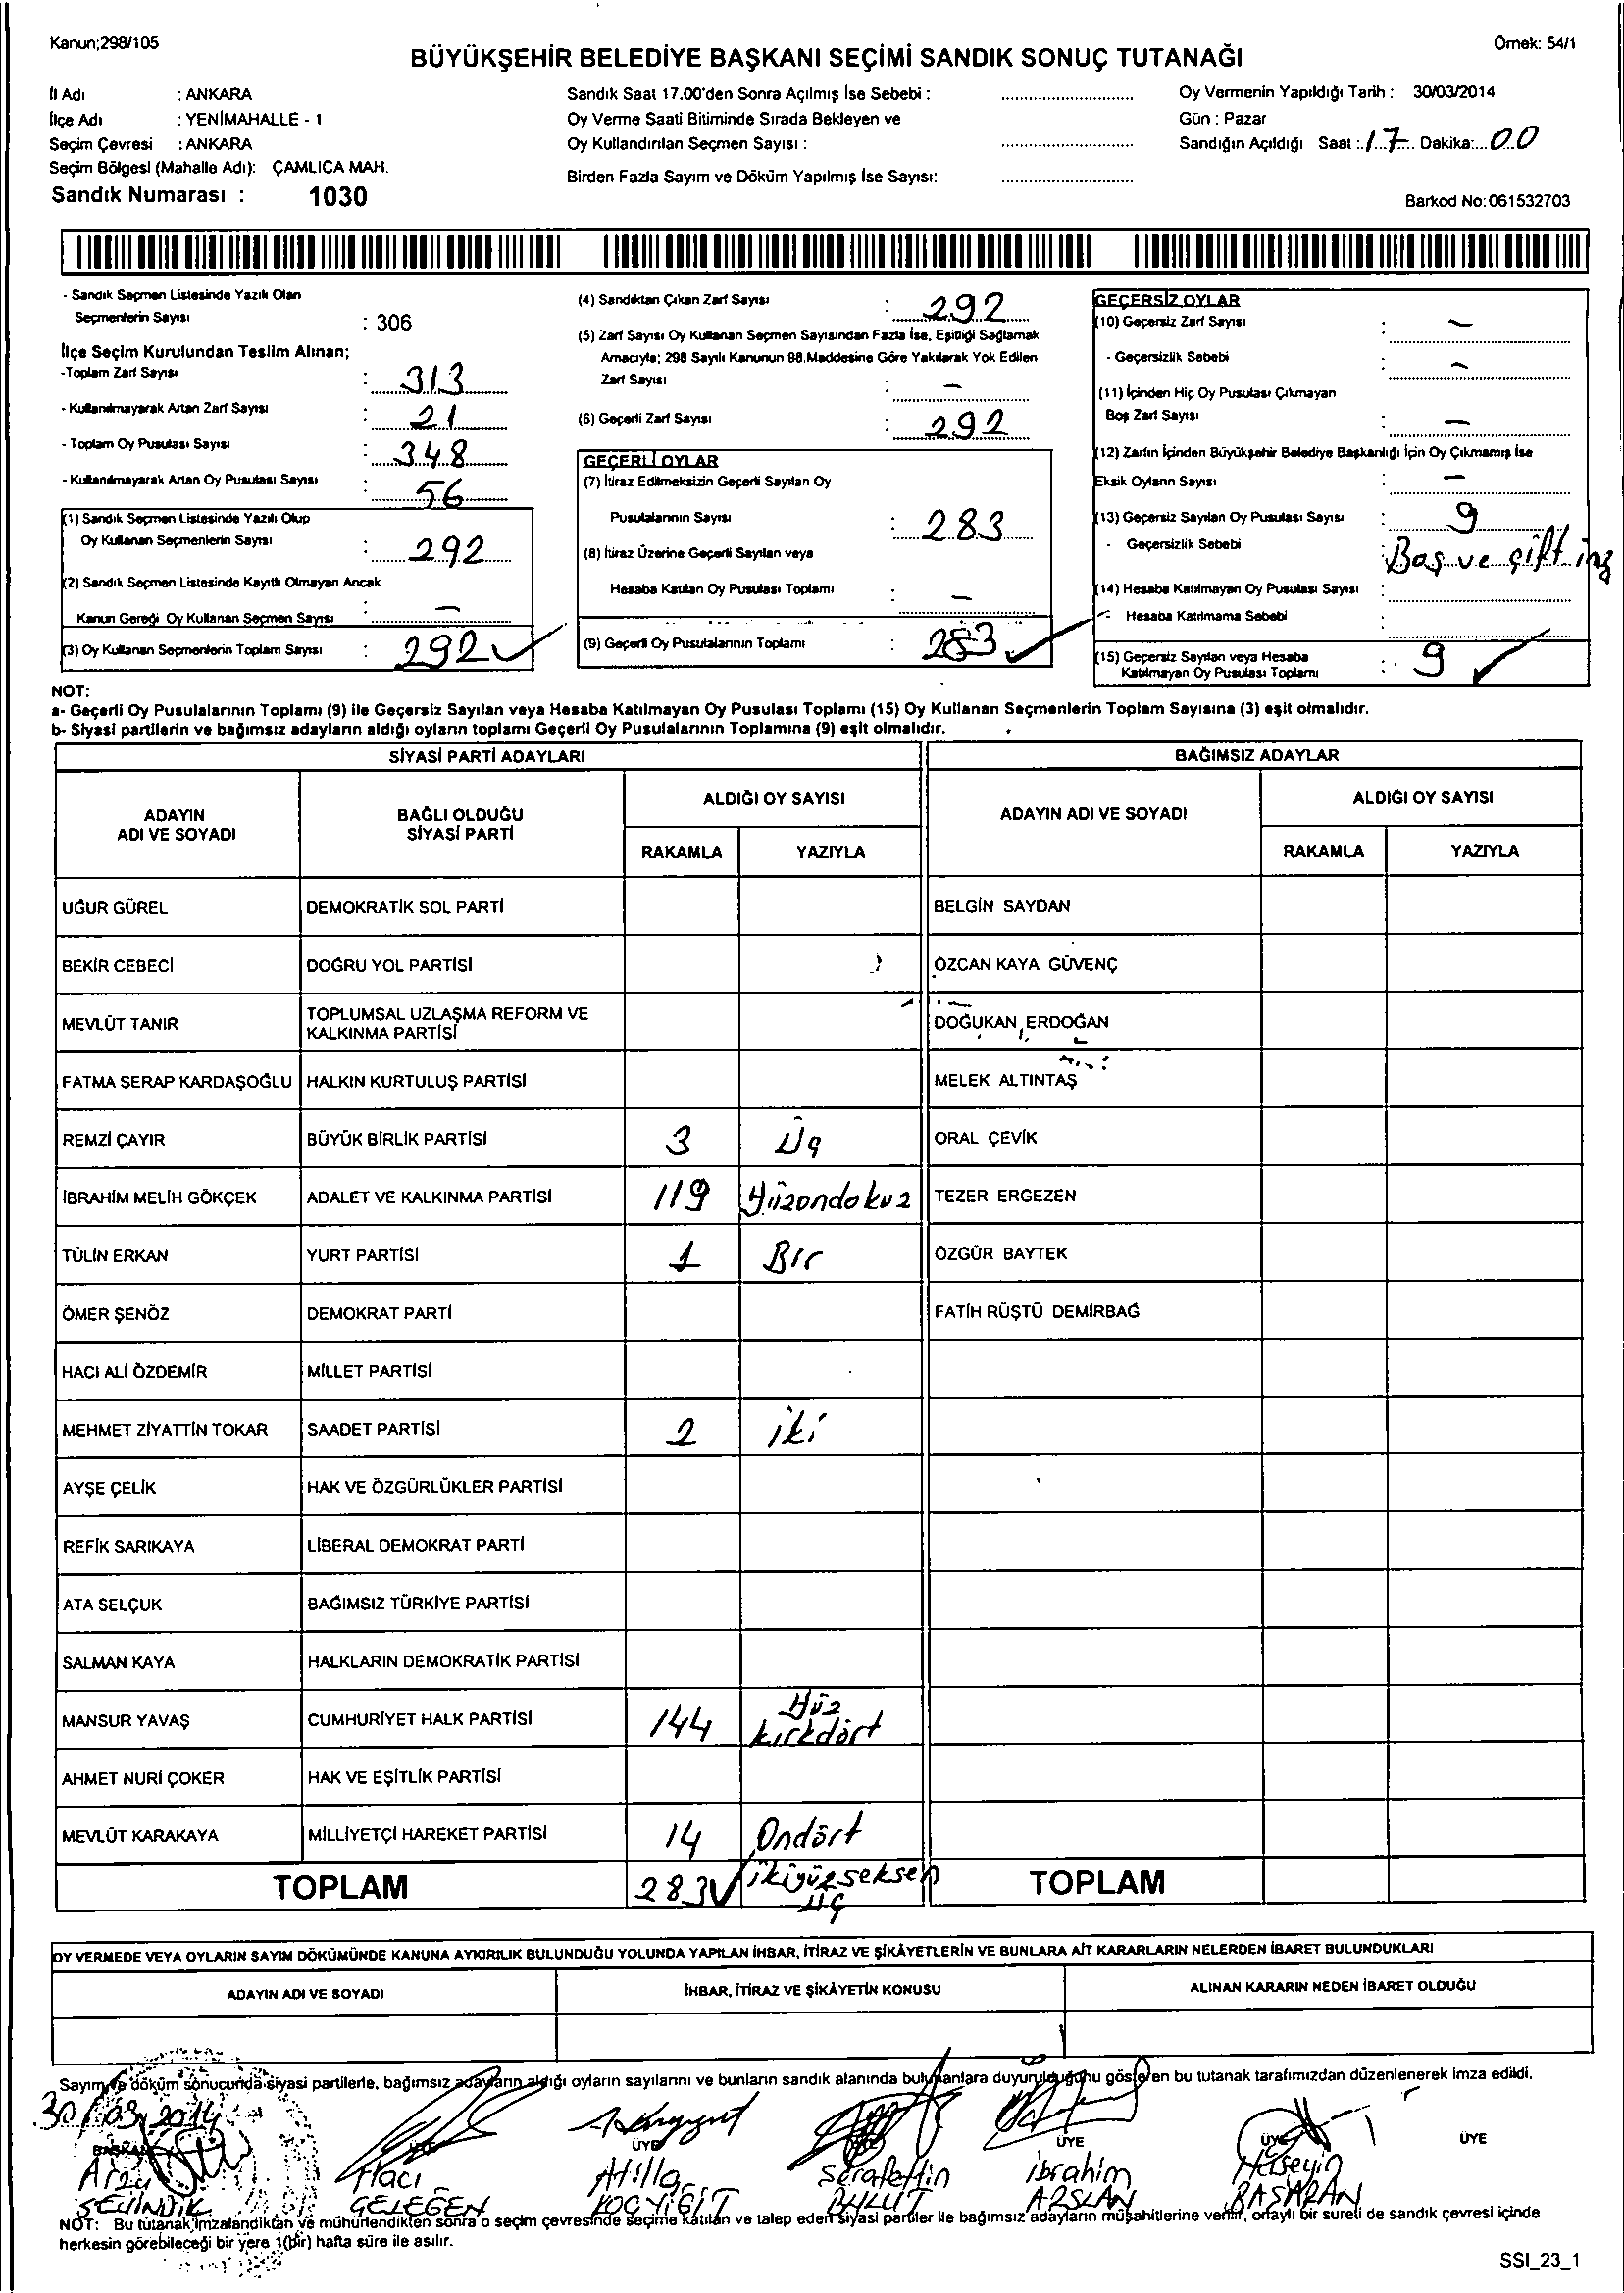 Kanun;298/105
Örnek: 54/1
BÜYÜKŞEHİR BELEDİYE BAŞKANI SEÇİMİ SANDIK SONUÇ TUTANAĞI
İl Adı : ANKARA
İlçe Adı : YENİMAHALLE - 1
Seçim Çevresi : ANKARA
Seçim Bölgesi (Mahalle Adı): ÇAMLICA MAH.
Sandık Numarası : 1030
Sandık Saat 17.00'den Sonra Açılmış İse Sebebi :
Oy Verme Saati Bitiminde Sırada Bekleyen ve
Oy Kullandırılan Seçmen Sayısı :
Birden Fazla Sayım ve Döküm Yapılmış İse Sayısı:
Oy Vermenin Yapıldığı Tarih : 30/03/2014
Gün : Pazar
Sandığın Açıldığı Saat : 17 Dakika: 00
Barkod No:061532703
- Sandık Seçmen Listesinde Yazılı Olan
Seçmenlerin Sayısı : 306
İlçe Seçim Kurulundan Teslim Alınan;
-Toplam Zarf Sayısı : 313
- Kullanılmayarak Artan Zarf Sayısı : 21
- Toplam Oy Pusulası Sayısı : 348
- Kullanılmayarak Artan Oy Pusulası Sayısı : 56
(1) Sandık Seçmen Listesinde Yazılı Olup
Oy Kullanan Seçmenlerin Sayısı : 292
(2) Sandık Seçmen Listesinde Kayıtlı Olmayan Ancak
Kanun Gereği Oy Kullanan Seçmen Sayısı : –
(3) Oy Kullanan Seçmenlerin Toplam Sayısı : 292 ✓
(4) Sandıktan Çıkan Zarf Sayısı : 292
(5) Zarf Sayısı Oy Kullanan Seçmen Sayısından Fazla İse, Eşitliği Sağlamak
Amacıyla; 298 Sayılı Kanunun 98.Maddesine Göre Yakılarak Yok Edilen
Zarf Sayısı : –
(6) Geçerli Zarf Sayısı : 292
GEÇERLİ OYLAR
(7) İtiraz Edilmeksizin Geçerli Sayılan Oy
Pusulalarının Sayısı : 283
(8) İtiraz Üzerine Geçerli Sayılan veya
Hesaba Katılan Oy Pusulası Toplamı : –
(9) Geçerli Oy Pusulalarının Toplamı : 283 ✓
GEÇERSİZ OYLAR
(10) Geçersiz Zarf Sayısı : –
- Geçersizlik Sebebi : –
(11) İçinden Hiç Oy Pusulası Çıkmayan
Boş Zarf Sayısı : –
(12) Zarfın İçinden Büyükşehir Belediye Başkanlığı İçin Oy Çıkmamış İse
Eksik Oyların Sayısı : –
(13) Geçersiz Sayılan Oy Pusulası Sayısı : 9
- Geçersizlik Sebebi : Boş ve çift
(14) Hesaba Katılmayan Oy Pusulası Sayısı :
- Hesaba Katılmama Sebebi :
(15) Geçersiz Sayılan veya Hesaba
Katılmayan Oy Pusulası Toplamı : 9 ✓
NOT:
a- Geçerli Oy Pusulalarının Toplamı (9) ile Geçersiz Sayılan veya Hesaba Katılmayan Oy Pusulası Toplamı (15) Oy Kullanan Seçmenlerin Toplam Sayısına (3) eşit olmalıdır.
b- Siyasi partilerin ve bağımsız adayların aldığı oyların toplamı Geçerli Oy Pusulalarının Toplamına (9) eşit olmalıdır.
SİYASİ PARTİ ADAYLARI BAĞIMSIZ ADAYLAR
ADAYIN
ADI VE SOYADI
BAĞLI OLDUĞU
SİYASİ PARTİ
ALDIĞI OY SAYISI
RAKAMLA YAZIYLA
ADAYIN ADI VE SOYADI
ALDIĞI OY SAYISI
RAKAMLA YAZIYLA
UĞUR GÜREL DEMOKRATİK SOL PARTİ BELGİN SAYDAN
BEKİR CEBECİ DOĞRU YOL PARTİSİ ÖZCAN KAYA GÜVENÇ
MEVLÜT TANIR TOPLUMSAL UZLAŞMA REFORM VE
KALKINMA PARTİSİ DOĞUKAN ERDOĞAN
FATMA SERAP KARDAŞOĞLU HALKIN KURTULUŞ PARTİSİ MELEK ALTINTAŞ
REMZİ ÇAYIR BÜYÜK BİRLİK PARTİSİ 3 Üç ORAL ÇEVİK
İBRAHİM MELİH GÖKÇEK ADALET VE KALKINMA PARTİSİ 119 Yüzondokuz TEZER ERGEZEN
TÜLİN ERKAN YURT PARTİSİ 1 Bir ÖZGÜR BAYTEK
ÖMER ŞENÖZ DEMOKRAT PARTİ FATİH RÜŞTÜ DEMİRBAĞ
HACI ALİ ÖZDEMİR MİLLET PARTİSİ
MEHMET ZİYATTİN TOKAR SAADET PARTİSİ 2 iki
AYŞE ÇELİK HAK VE ÖZGÜRLÜKLER PARTİSİ
REFİK SARIKAYA LİBERAL DEMOKRAT PARTİ
ATA SELÇUK BAĞIMSIZ TÜRKİYE PARTİSİ
SALMAN KAYA HALKLARIN DEMOKRATİK PARTİSİ
MANSUR YAVAŞ CUMHURİYET HALK PARTİSİ 144 Yüz
kırkdört
AHMET NURİ ÇOKER HAK VE EŞİTLİK PARTİSİ
MEVLÜT KARAKAYA MİLLİYETÇİ HAREKET PARTİSİ 14 Ondört
TOPLAM 283 ✓ ikiyüzseksen
üç TOPLAM
OY VERMEDE VEYA OYLARIN SAYIM DÖKÜMÜNDE KANUNA AYKIRILIK BULUNDUĞU YOLUNDA YAPILAN İHBAR, İTİRAZ VE ŞİKÂYETLERİN VE BUNLARA AİT KARARLARIN NELERDEN İBARET BULUNDUKLARI
ADAYIN ADI VE SOYADI İHBAR, İTİRAZ VE ŞİKÂYETİN KONUSU ALINAN KARARIN NEDEN İBARET OLDUĞU
Sayım ve döküm sonucunda siyasi partilerle, bağımsız adayların aldığı oyların sayılarını ve bunların sandık alanında bulunanlara duyurulduğunu gösteren bu tutanak tarafımızdan düzenlenerek imza edildi.
30/03/2014
BAŞKAN ÜYE ÜYE ÜYE ÜYE ÜYE ÜYE
Arzu Hacı Atilla Şerafettin İbrahim Hüseyin
SEVİNDİK GELEĞEN KOÇYİĞİT BULUT ARSLAN BAŞARAN
NOT: Bu tutanak imzalandıktan ve mühürlendikten sonra o seçim çevresinde seçime katılan ve talep eden siyasi partiler ile bağımsız adayların müşahitlerine verilir, onaylı bir sureti de sandık çevresi içinde
herkesin görebileceği bir yere 1(bir) hafta süre ile asılır.
SSI_23_1